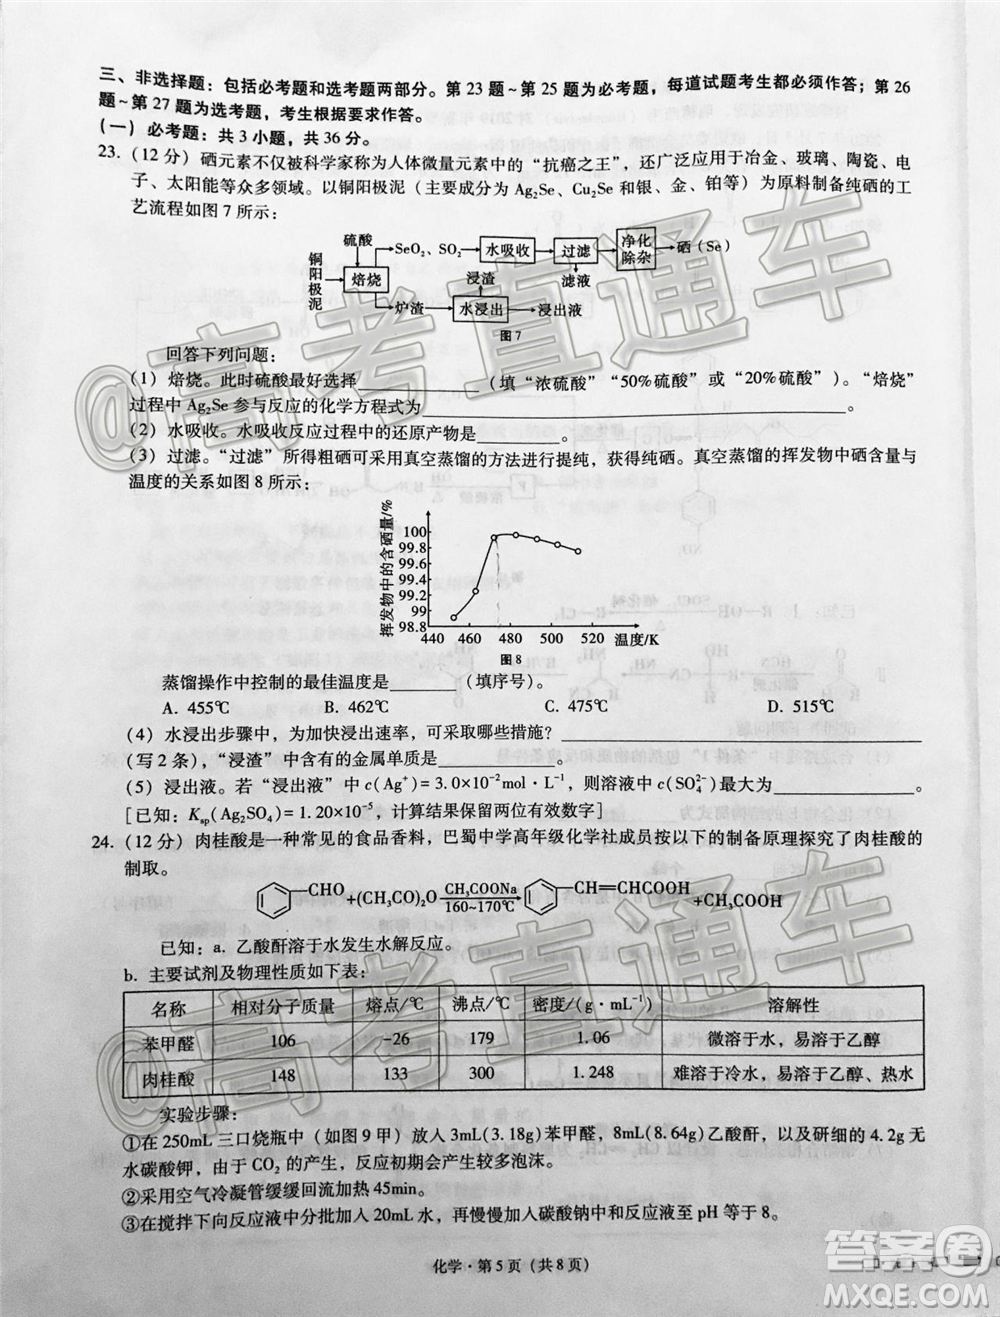 三、非选择题：包括必考题和选考题两部分。第 23 题～第 25 题为必考题，每道试题考生都必须作答；第 26
题～第 27 题为选考题，考生根据要求作答。
(一) 必考题：共 3 小题，共 36 分。
23. (12 分) 硒元素不仅被科学家称为人体微量元素中的“抗癌之王”，还广泛应用于冶金、玻璃、陶瓷、电
子、太阳能等众多领域。以铜阳极泥（主要成分为 Ag₂Se、Cu₂Se 和银、金、铂等）为原料制备纯硒的工
艺流程如图 7 所示：
硫酸
铜阳极泥 焙烧 SeO₂、SO₂ 水吸收 过滤 净化除杂 硒（Se）
浸渣 滤液
炉渣 水浸出 浸出液
图 7
回答下列问题：
(1) 焙烧。此时硫酸最好选择____________（填“浓硫酸”“50%硫酸”或“20%硫酸”）。“焙烧”
过程中 Ag₂Se 参与反应的化学方程式为____________。
(2) 水吸收。水吸收反应过程中的还原产物是________。
(3) 过滤。“过滤”所得粗硒可采用真空蒸馏的方法进行提纯，获得纯硒。真空蒸馏的挥发物中硒含量与
温度的关系如图 8 所示：
挥发物中的含硒量/%
100
99.8
99.6
99.4
99.2
99
98.8
440 460 480 500 520 温度/K
图 8
蒸馏操作中控制的最佳温度是________（填序号）。
A. 455℃ B. 462℃ C. 475℃ D. 515℃
(4) 水浸出步骤中，为加快浸出速率，可采取哪些措施？____________
（写 2 条），“浸渣”中含有的金属主要是____________。
(5) 浸出液。若“浸出液”中 c(Ag⁺)=3.0×10⁻²mol·L⁻¹，则溶液中 c(SO₄²⁻)=____________。
[已知：Ksp(Ag₂SO₄)=1.20×10⁻⁵，计算结果保留两位有效数字]
24. (12 分) 肉桂酸是一种常见的食品香料，巴蜀中学高年级化学社成员按以下的制备原理探究了肉桂酸的
制取。
CHO +(CH₃CO)₂O CH₃COONa 160~170℃ CH=CHCOOH +CH₃COOH
已知：a. 乙酸酐溶于水发生水解反应。
b. 主要试剂及物理性质如下表：
名称 相对分子质量 熔点/℃ 沸点/℃ 密度/(g·mL⁻¹) 溶解性
苯甲醛 106 -26 179 1.06 微溶于水，易溶于乙醇
肉桂酸 148 133 300 1.248 难溶于冷水，易溶于乙醇、热水
实验步骤：
①在 250mL 三口烧瓶中（如图 9 甲）放入 3mL(3.18g)苯甲醛，8mL(8.64g)乙酸酐，以及研细的 4.2g无
水碳酸钾，由于 CO₂ 的产生，反应初期会产生较多泡沫。
②采用空气冷凝管缓缓回流加热 45min。
③在搅拌下向反应液中分批加入 20mL 水，再慢慢加入碳酸钠中和反应液至 pH 等于 8。
化学·第 5 页（共 8 页）
@高考直通车
@高考直通车
答案圈
MXQE.COM